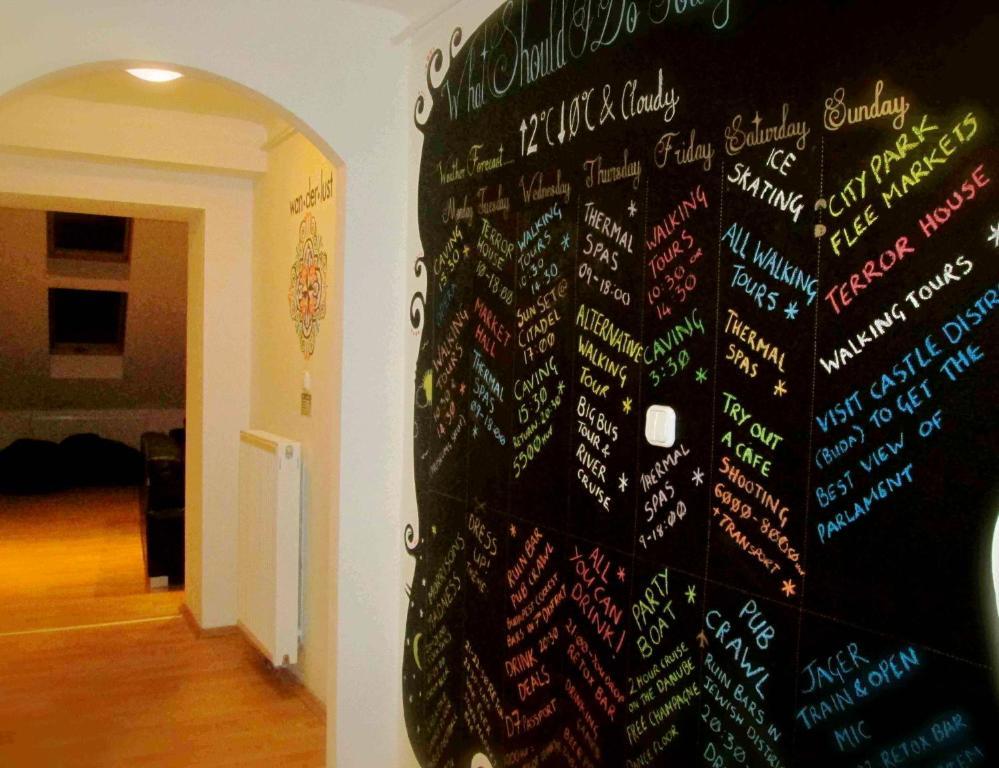 What Should I Do Today
Weather Forecast... ↑2°C ↓0°C & Cloudy
wan•der•lust
Monday
CAVING
15:30 *
WALKING
TOURS
Tuesday
TERROR
HOUSE
10-18:00
MARKET
HALL
THERMAL
SPAS
09-18:00
Wednesday
WALKING
TOURS *
10:30
14:30
SUNSET @
CITADEL
17:00
CAVING
15:30 *
RETURN 20:30
5500HUF
Thursday
THERMAL *
SPAS
09-18:00
ALTERNATIVE
WALKING
TOUR *
BIG BUS
TOUR &
RIVER *
CRUISE
Friday
WALKING
TOURS
10:30 OR
14:30
CAVING
3:30 *
THERMAL
SPAS *
9-18:00
Saturday
ICE
SKATING
ALL WALKING
TOURS *
THERMAL
SPAS *
TRY OUT
A CAFE
SHOOTING
6000-8000HUF
+TRANSPORT
*
Sunday
CITY PARK
FLEE MARKETS
TERROR HOUSE
WALKING TOURS *
VISIT CASTLE DISTR
(BUDA) TO GET THE
BEST VIEW OF
PARLAMENT
MADNESS
DRESS
UP!
* RUIN BAR
PUB CRAWL
BUDAPEST COOLEST
BARS IN 7 DISTRICT
DRINK 20:30
DEALS
D7 PASSPORT
ALL *
YOU CAN
DRINK!
RETOX BAR
PARTY
BOAT *
2 HOUR CRUISE
ON THE DANUBE
FREE CHAMPAGNE
DANCE FLOOR
* PUB
CRAWL
RUIN BARS IN
JEWISH DISTRI
20:30
JAGER
TRAIN & OPEN
MIC
RETOX BAR